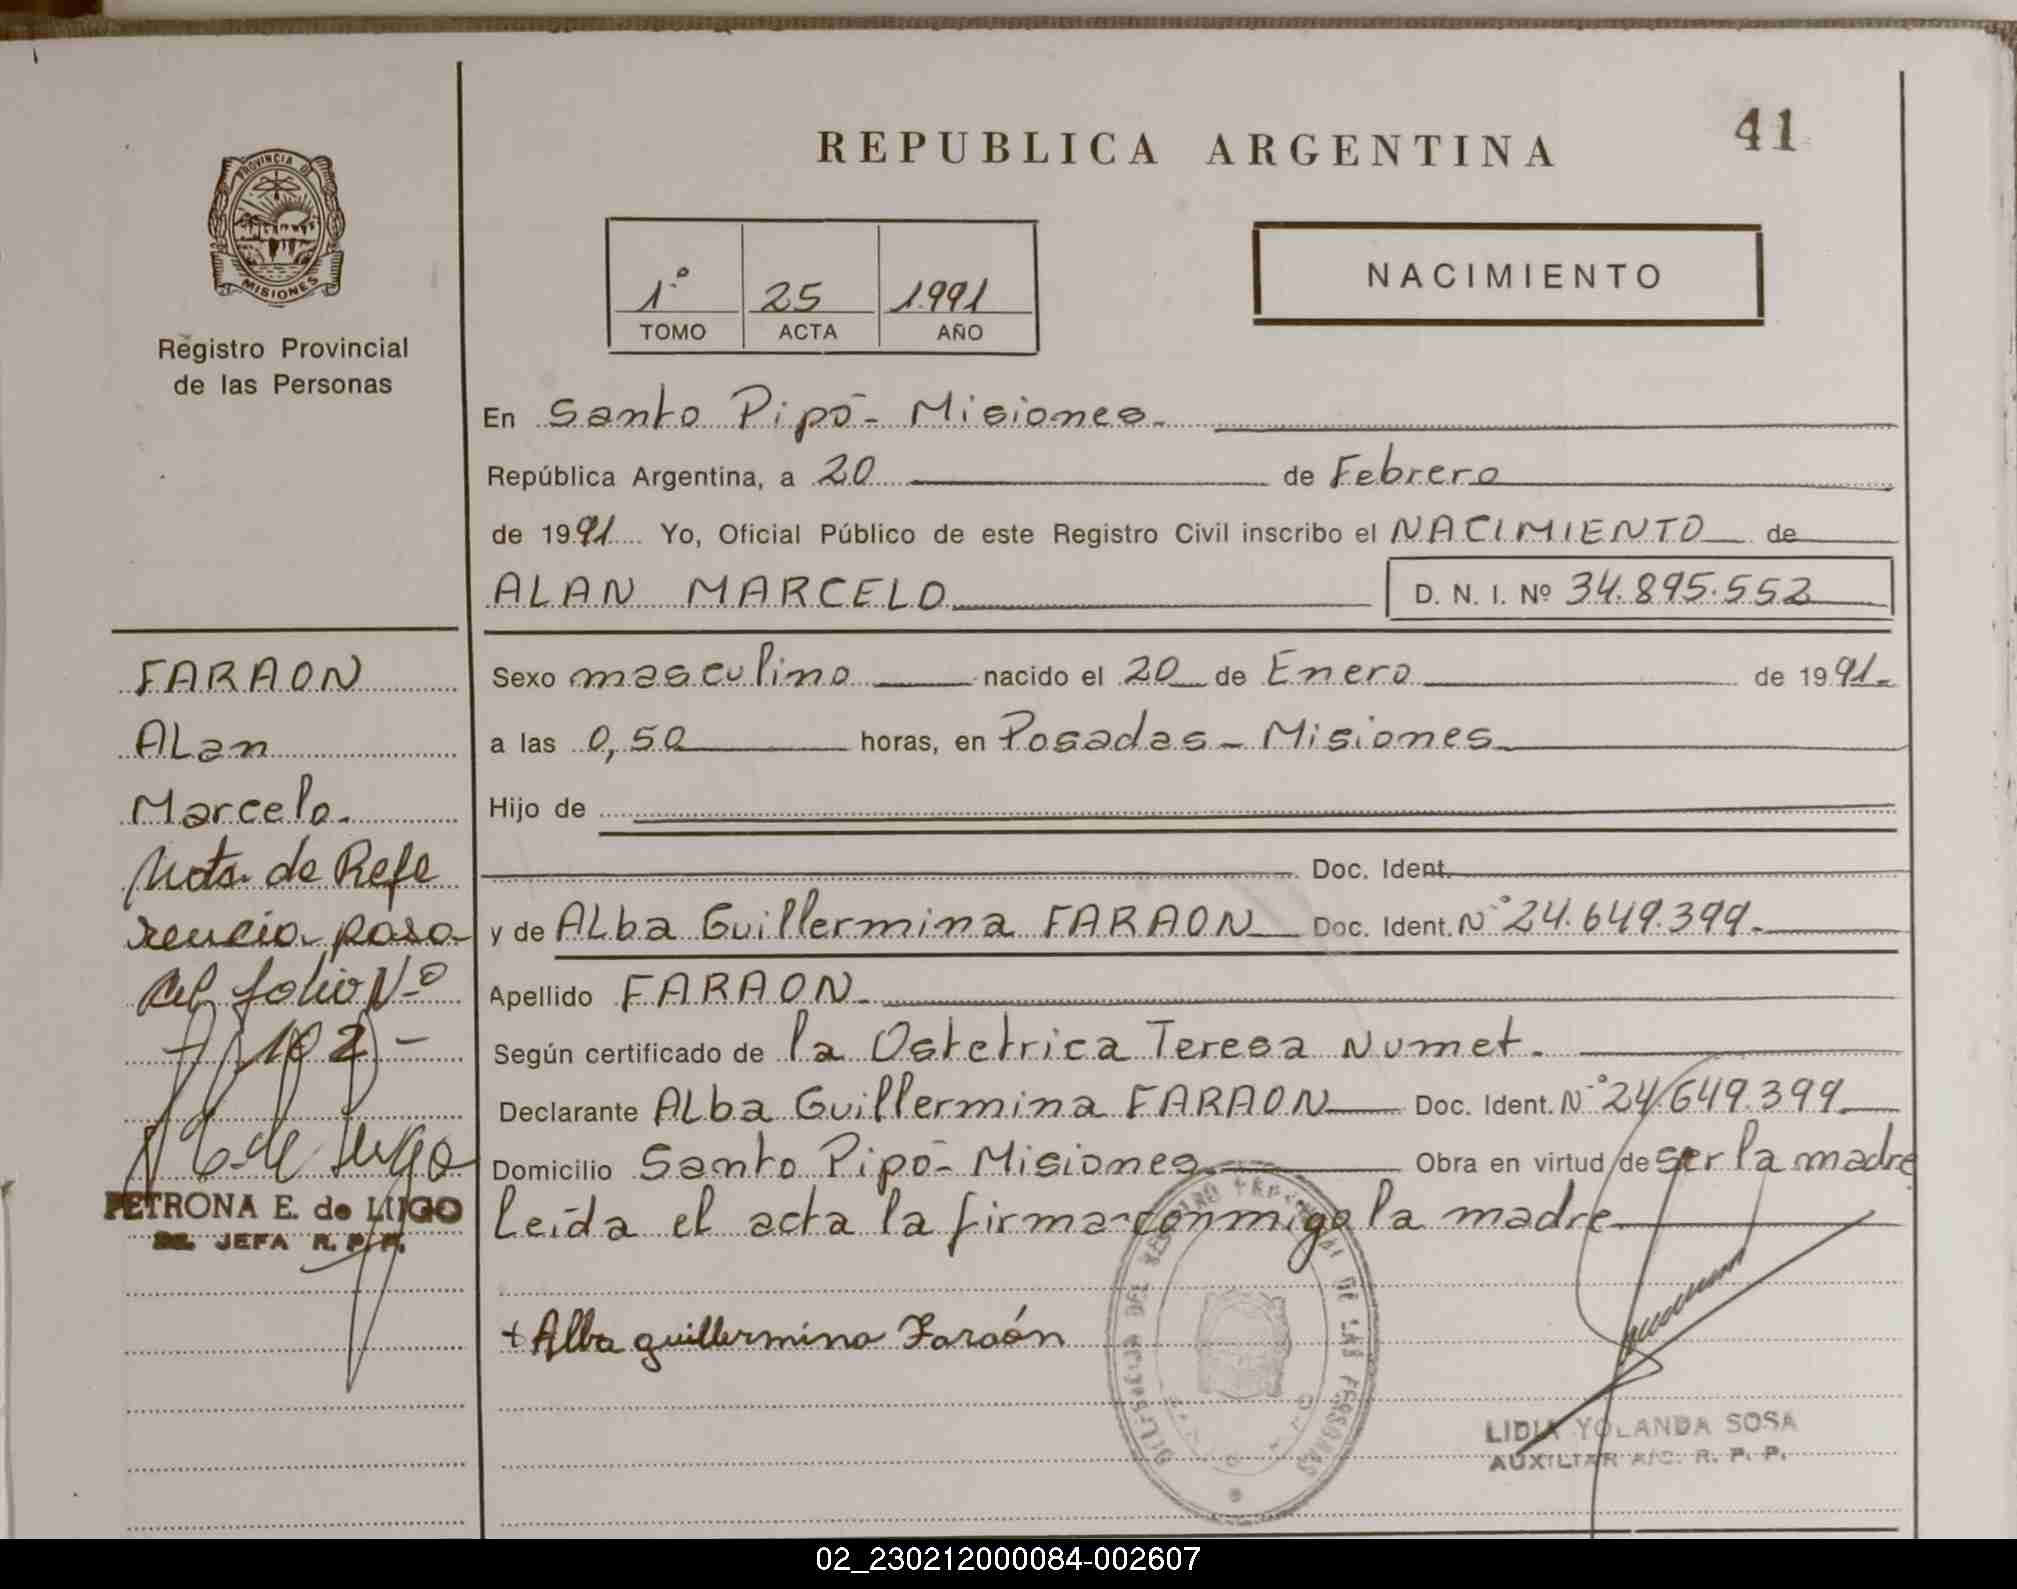 REPUBLICA ARGENTINA
41
PROVINCIA DE
MISIONES
Registro Provincial
de las Personas
1º 25 1991
TOMO ACTA AÑO
NACIMIENTO
En Santo Pipó - Misiones.
República Argentina, a 20 de Febrero
de 1991 Yo, Oficial Público de este Registro Civil inscribo el NACIMIENTO de
ALAN MARCELO D. N. I. Nº 34.895.552
Sexo masculino nacido el 20 de Enero de 1991.
a las 0,50 horas, en Posadas - Misiones
Hijo de
Doc. Ident.
y de Alba Guillermina FARAON Doc. Ident. Nº 24.649.399.
Apellido FARAON.
Según certificado de la Ostetrica Teresa Numet.
Declarante Alba Guillermina FARAON Doc. Ident. Nº 24.649.399.
Domicilio Santo Pipó - Misiones Obra en virtud de ser la madre
Leída el acta la firma conmigo la madre
+ Alba guillermina Faraón
LIDIA YOLANDA SOSA
AUXILIAR A/C. R. P. P.
FARAON
ALan
Marcelo.
Nota de Refe
rencia pasa
al folio Nº
102 -
PETRONA E. de LUGO
JEFA R. P. P.
02_230212000084-002607